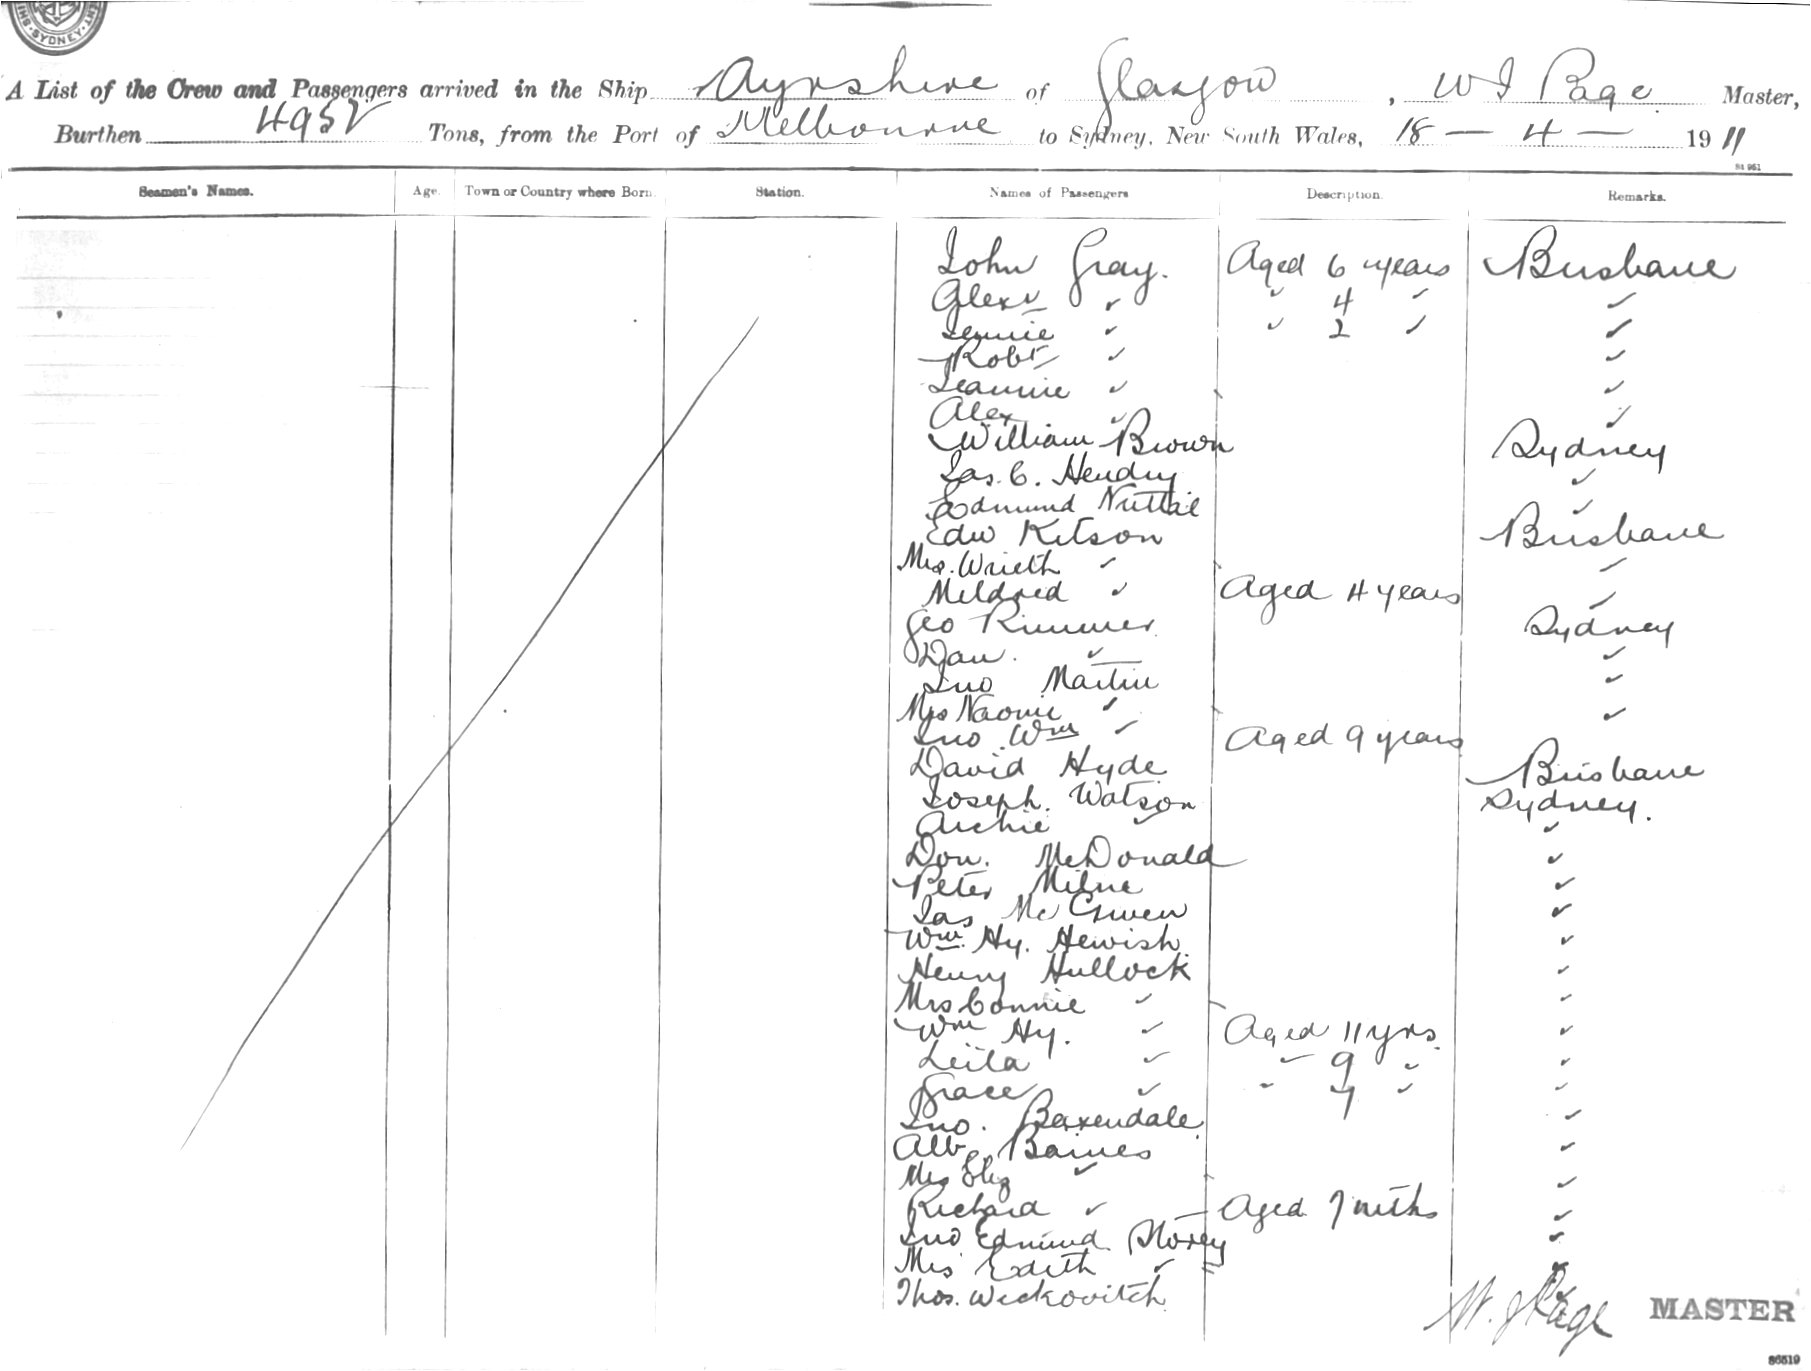 SYDNEY
A List of the Crew and Passengers arrived in the Ship Ayrshire of Glasgow, W J Page Master,
Burthen Tons, from the Port of Melbourne to Sydney, New South Wales, 18 - 4 - 1911
84 951
Seamen's Names. Age. Town or Country where Born. Station. Names of Passengers Description. Remarks.
John Gray. Aged 6 years Brisbane
Alexr " " 4 " "
Jennie " " 2 " "
Robt " "
Jeannie " "
Alex " "
William Brown Sydney
Jas. C. Hendry "
Edmund Nuttall "
Edw Kitson Brisbane
Mrs. " "
Mildred " Aged 4 years "
Geo Rimmer Sydney
Dan. " "
Jno Martin "
Mrs Naomi " "
Jno Wm " Aged 9 years
David Hyde Brisbane
Joseph. Watson Sydney.
Archie " "
Don. McDonald "
Peter Milne "
Jas Mc "
Wm. Hy. Hewish "
Henry Hullock "
Mrs Connie " "
Wm Hy. " Aged 11 yrs. "
Leila " " 9 " "
Grace " " 7 " "
Jno. Baxendale "
Alb. Baines "
Mrs Eliz " "
Richard " Aged 7 mths "
Jno Edmund Storey "
Mrs Edith " "
Thos. Weckovitch "
W. J Page MASTER
86519